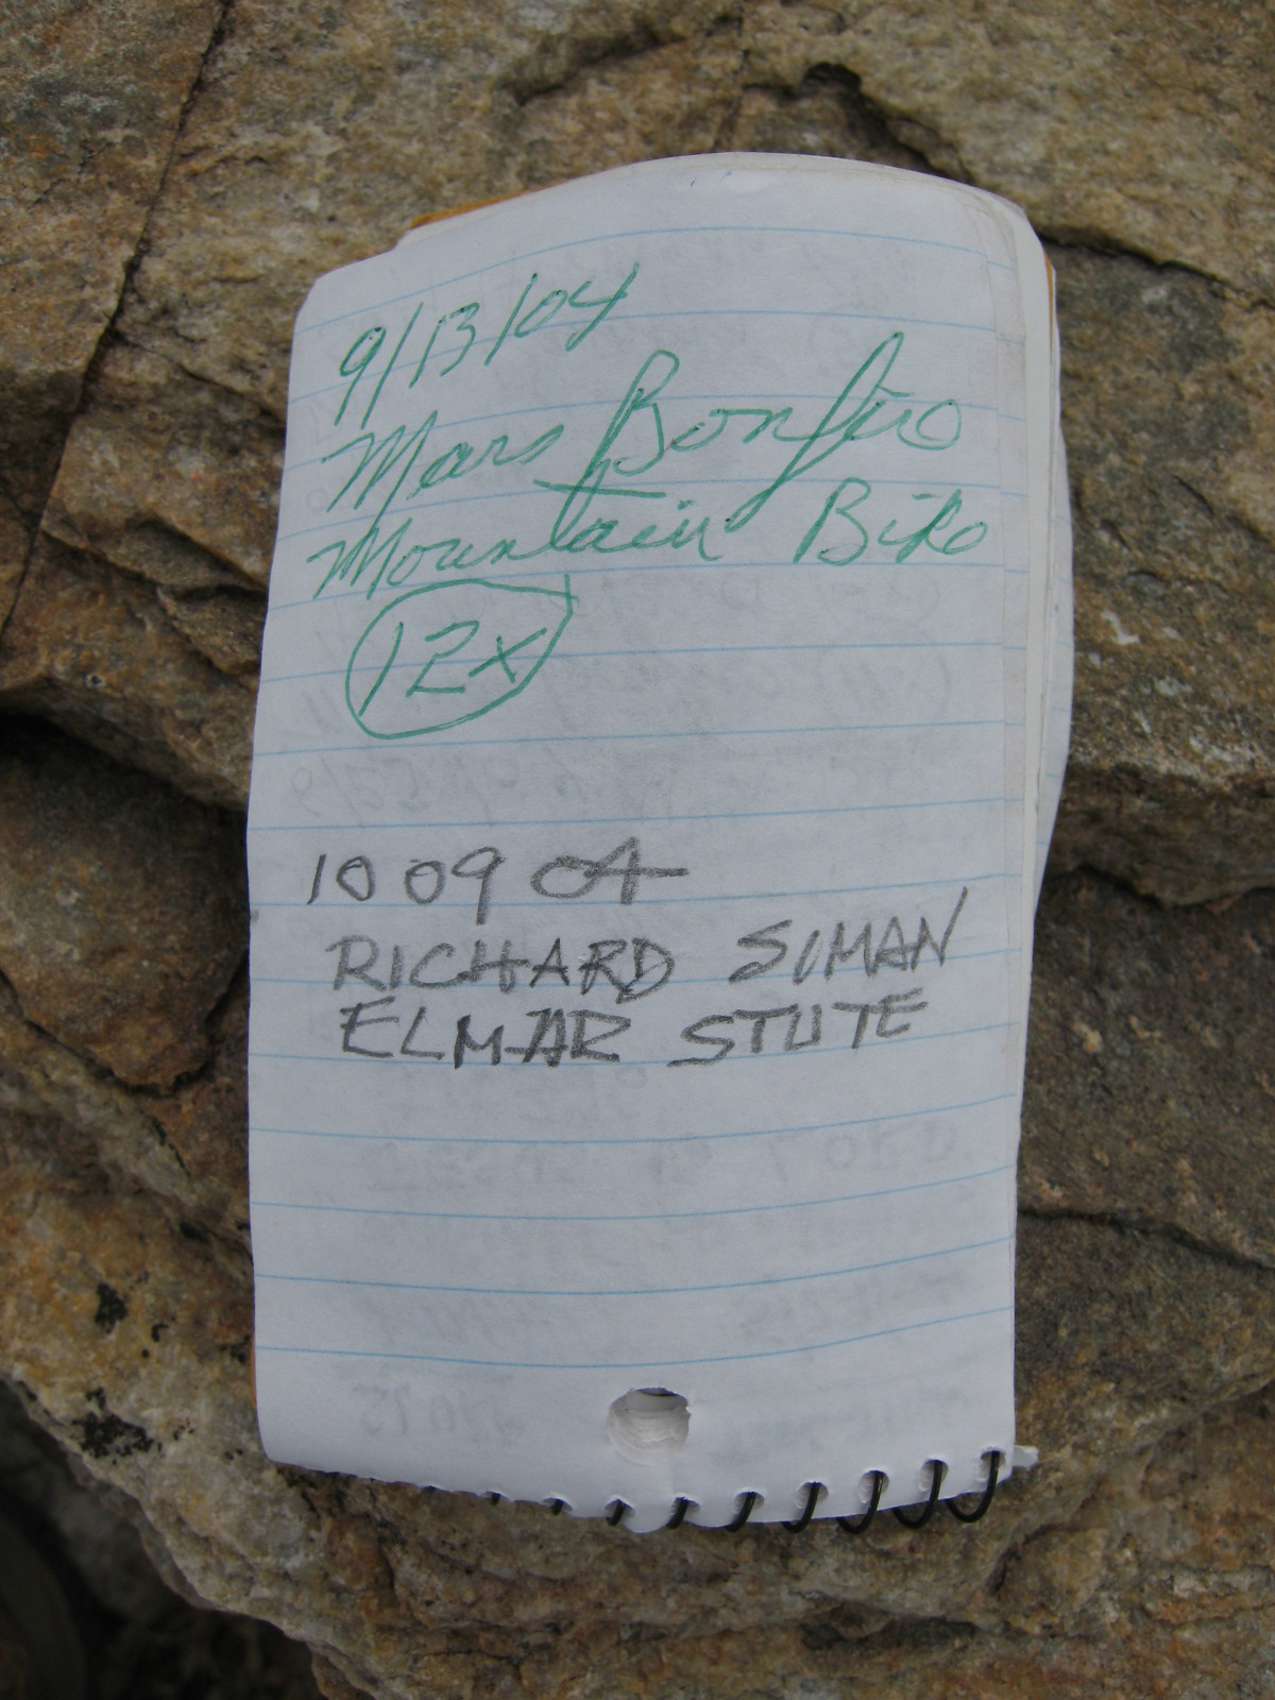 9/13/04
Mars Bonfire
Mountain Bike
12x
10 09 04
RICHARD SUMAN
ELMAR STUTE